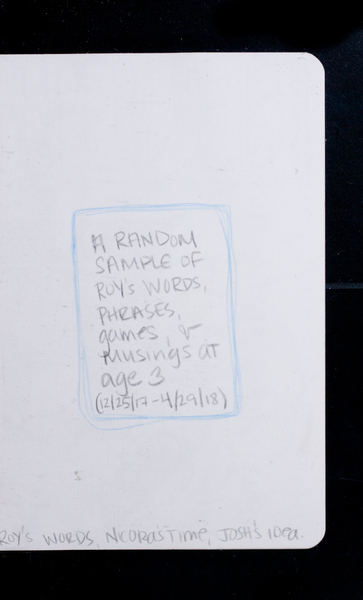 A RANDOM
SAMPLE OF
ROY'S WORDS,
PHRASES,
games, &
Musings at
age 3
(12/25/17-4/29/18)
ROY'S WORDS, Nicora's Time, JOSH'S idea.